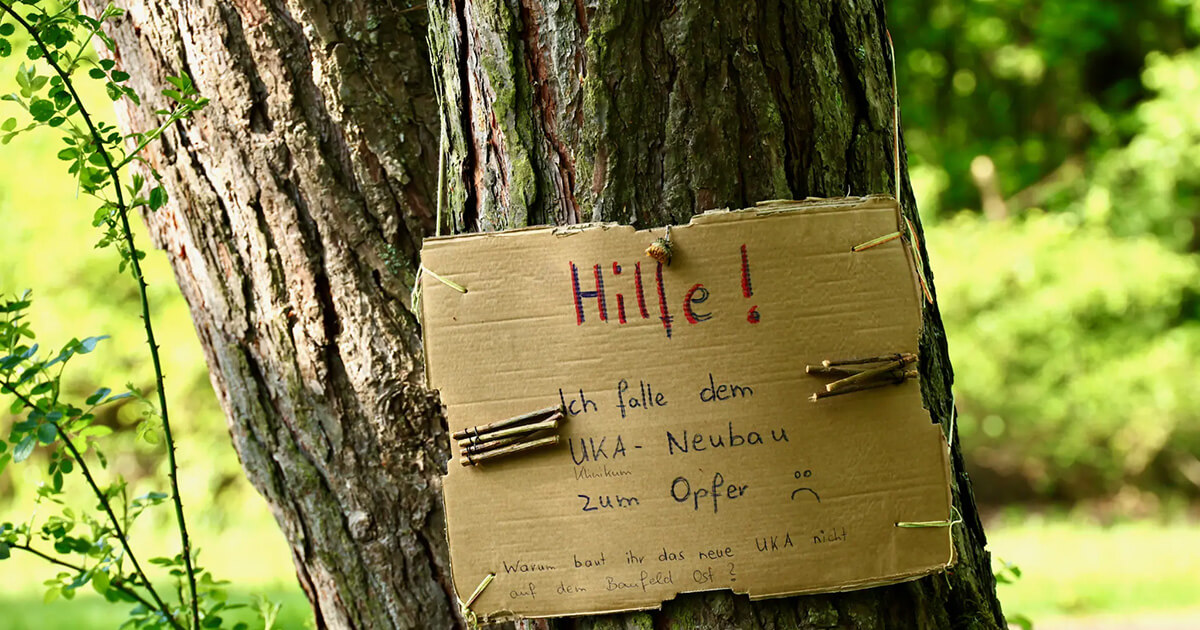 Hilfe!
Ich falle dem
UKA- Neubau
Klinikum
zum Opfer
Warum baut ihr das neue UKA nicht
auf dem Baufeld Ost?